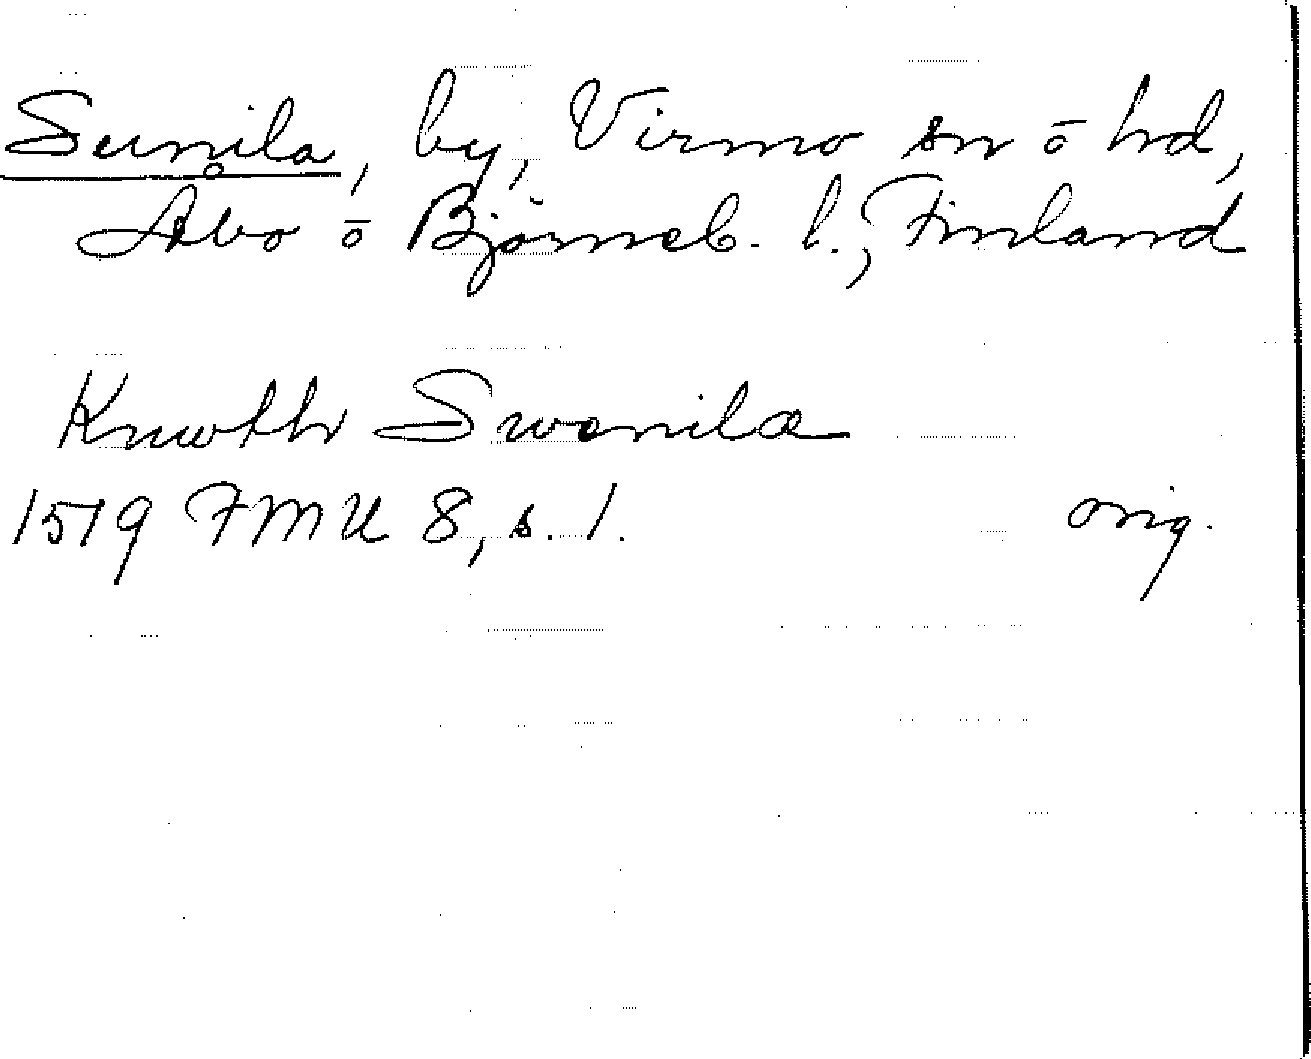 Sunila, by, Virmo sn ō hd,
Åbo ō Björneb. l., Finland
Knwth Swonila
1519 FMU 8, s. 1. orig.